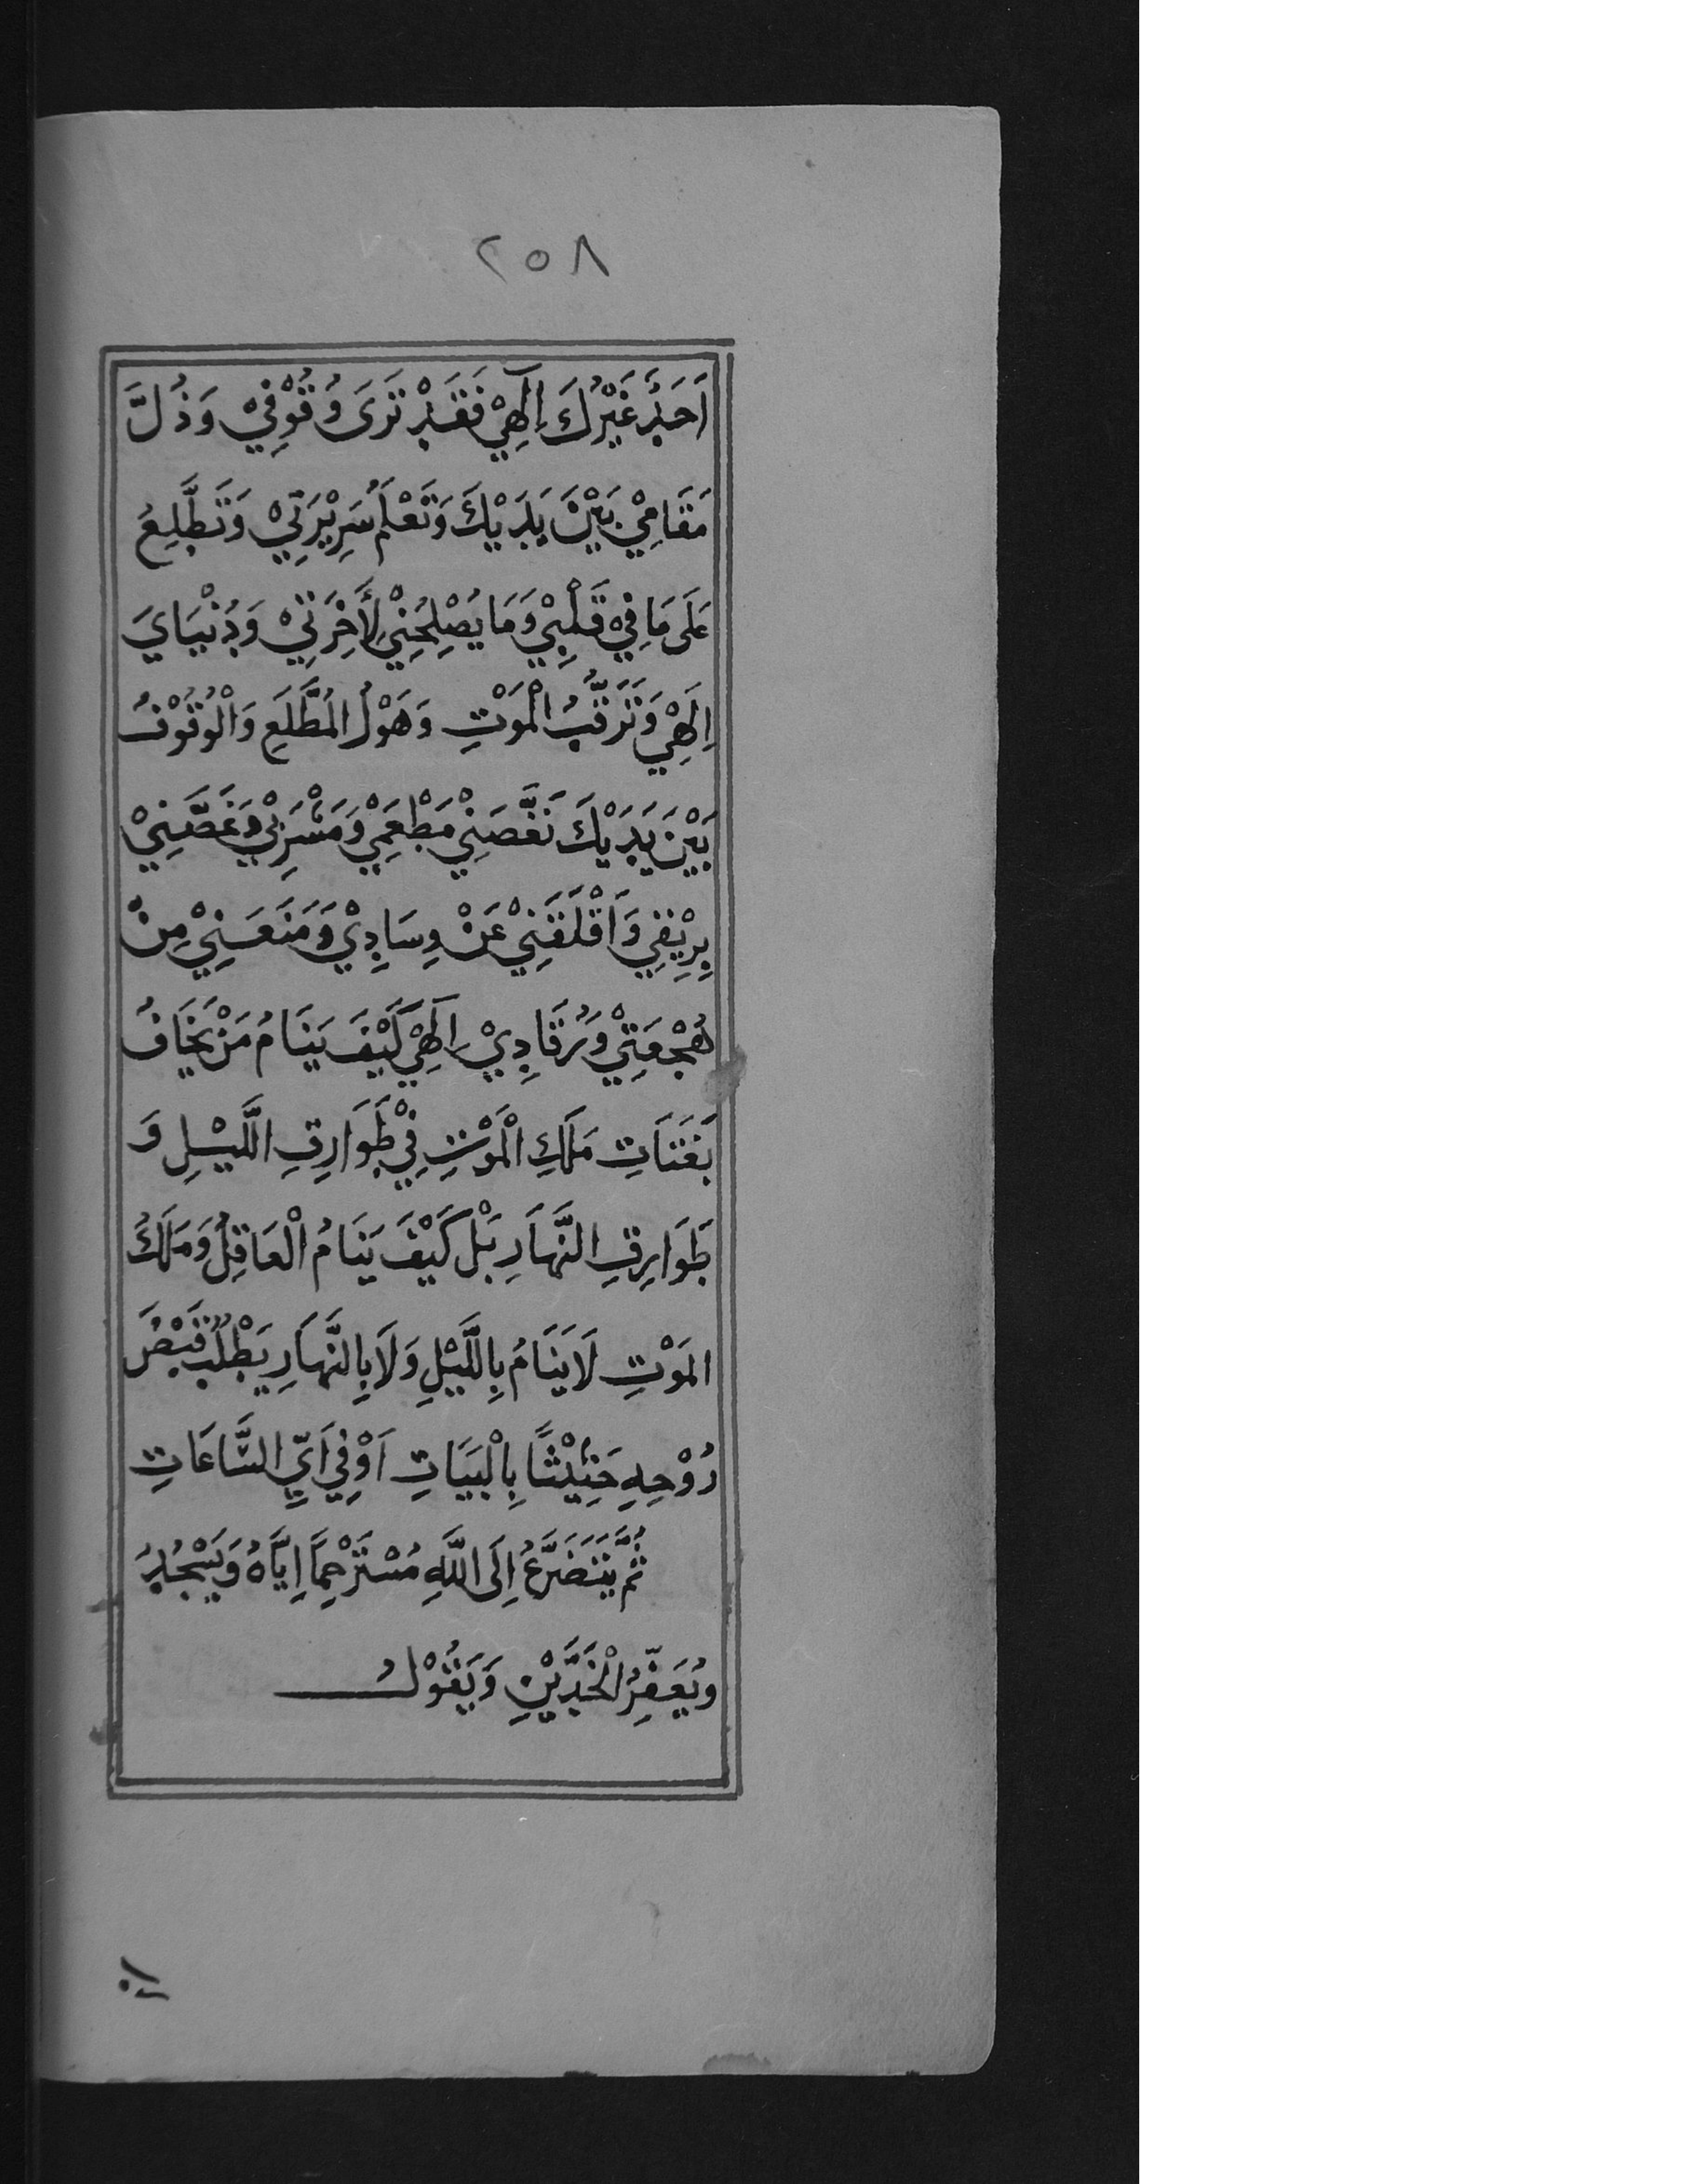 ٢٥٨
اَحَدٌ غَيْرُكَ اِلٰهِيْ فَقَدْ تَرَىَ وُقُوْفِيْ وَذُلَّ
مَقَامِيْ بَيْنَ يَدَيْكَ وَتَعْلَمُ سَرِيْرَتِيْ وَتَطَّلِعُ
عَلَى مَا فِيْ قَلْبِيْ وَمَا يُصْلِحُنِيْ لِأَخِرَتِيْ وَدُنْيَايَ
اِلَهِيْ وَتَرَقُّبُ الْمَوْتِ وَهَوْلُ الْمُطَّلَعِ وَالْوُقُوْفُ
بَيْنَ يَدَيْكَ نَغَّصَنِيْ مَطْعَمِيْ وَمَشْرَبِيْ وَغَصَّنِيْ
بِرِيْقِي وَاَقْلَقَنِيْ عَنْ وِسَادِيْ وَمَنَعَنِيْ مِنْ
هُجْعَتِيْ وَرُقَادِيْ اِلٰهِيْ كَيْفَ يَنَامُ مَنْ يَخَافُ
بَغَتَاتِ مَلَكِ الْمَوْتِ فِيْ طَوَارِقِ اللَّيْلِ وَ
طَوَارِقِ النَّهَارِ بَلْ كَيْفَ يَنَامُ الْعَاقِلُ وَمَلَكُ
المَوْتِ لَا يَنَامُ بِاللَّيْلِ وَلَا بِالنَّهَارِ يَطْلُبُ قَبْضَ
رُوْحِهِ حَثِيْثًا بِالْبَيَاتِ اَوْ فِي اَيِّ السَّاعَاتِ
ثُمَّ يَتَضَرَّعُ اِلَى اللَّهِ مُسْتَرْحِمًا اِيَّاهُ وَيَسْجُدُ
وَيُعَفِّرُ الْخَدَّيْنِ وَيَقُوْلُ